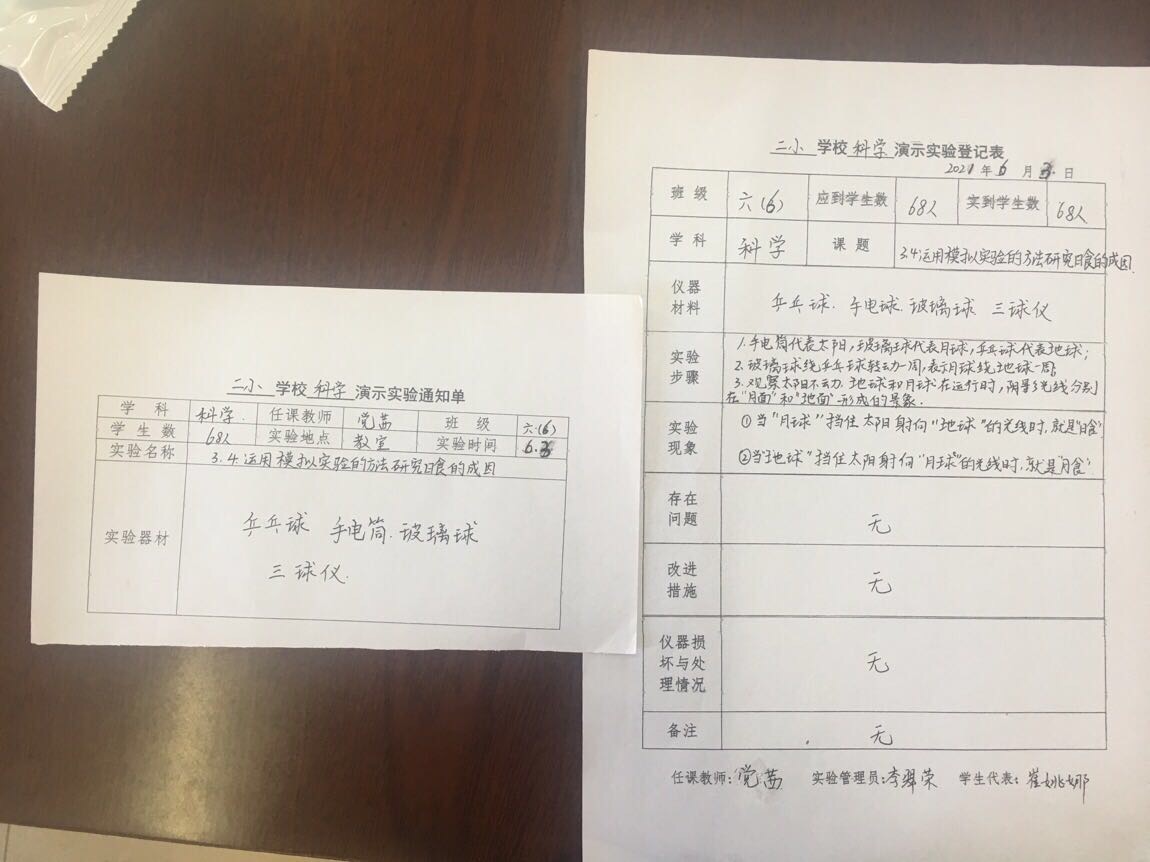 二小 学校 科学 演示实验通知单
学 科 科学. 任课教师 党茜 班 级 六(6)
学 生 数 68人 实验地点 教室 实验时间 6.3
实验名称 3.4.运用模拟实验的方法研究日食的成因
实验器材 乒乓球 手电筒.玻璃球
三球仪.
二小 学校 科学 演示实验登记表
2021 年 6 月 3 日
班 级 六(6) 应到学生数 68人 实到学生数 68人
学 科 科学 课 题 3.4运用模拟实验的方法研究日食的成因
仪器材料 乒乓球.手电球.玻璃球 三球仪
实验步骤 1.手电筒代表太阳,玻璃球代表月球,乒乓球代表地球;
2.玻璃球绕乒乓球转动一周,表示月球绕地球一周;
3.观察太阳不动.地球和月球在运行时,阴影光线分别
在"月面"和"地面"形成的景象.
实验现象 ①当"月球"挡住太阳射向"地球"的光线时,就是"日食"
②当"地球"挡住太阳射向"月球"的光线时,就是"月食"
存在问题 无
改进措施 无
仪器损坏与处理情况 无
备注 无
任课教师:党茜 实验管理员:李翠荣 学生代表:崔姚娜